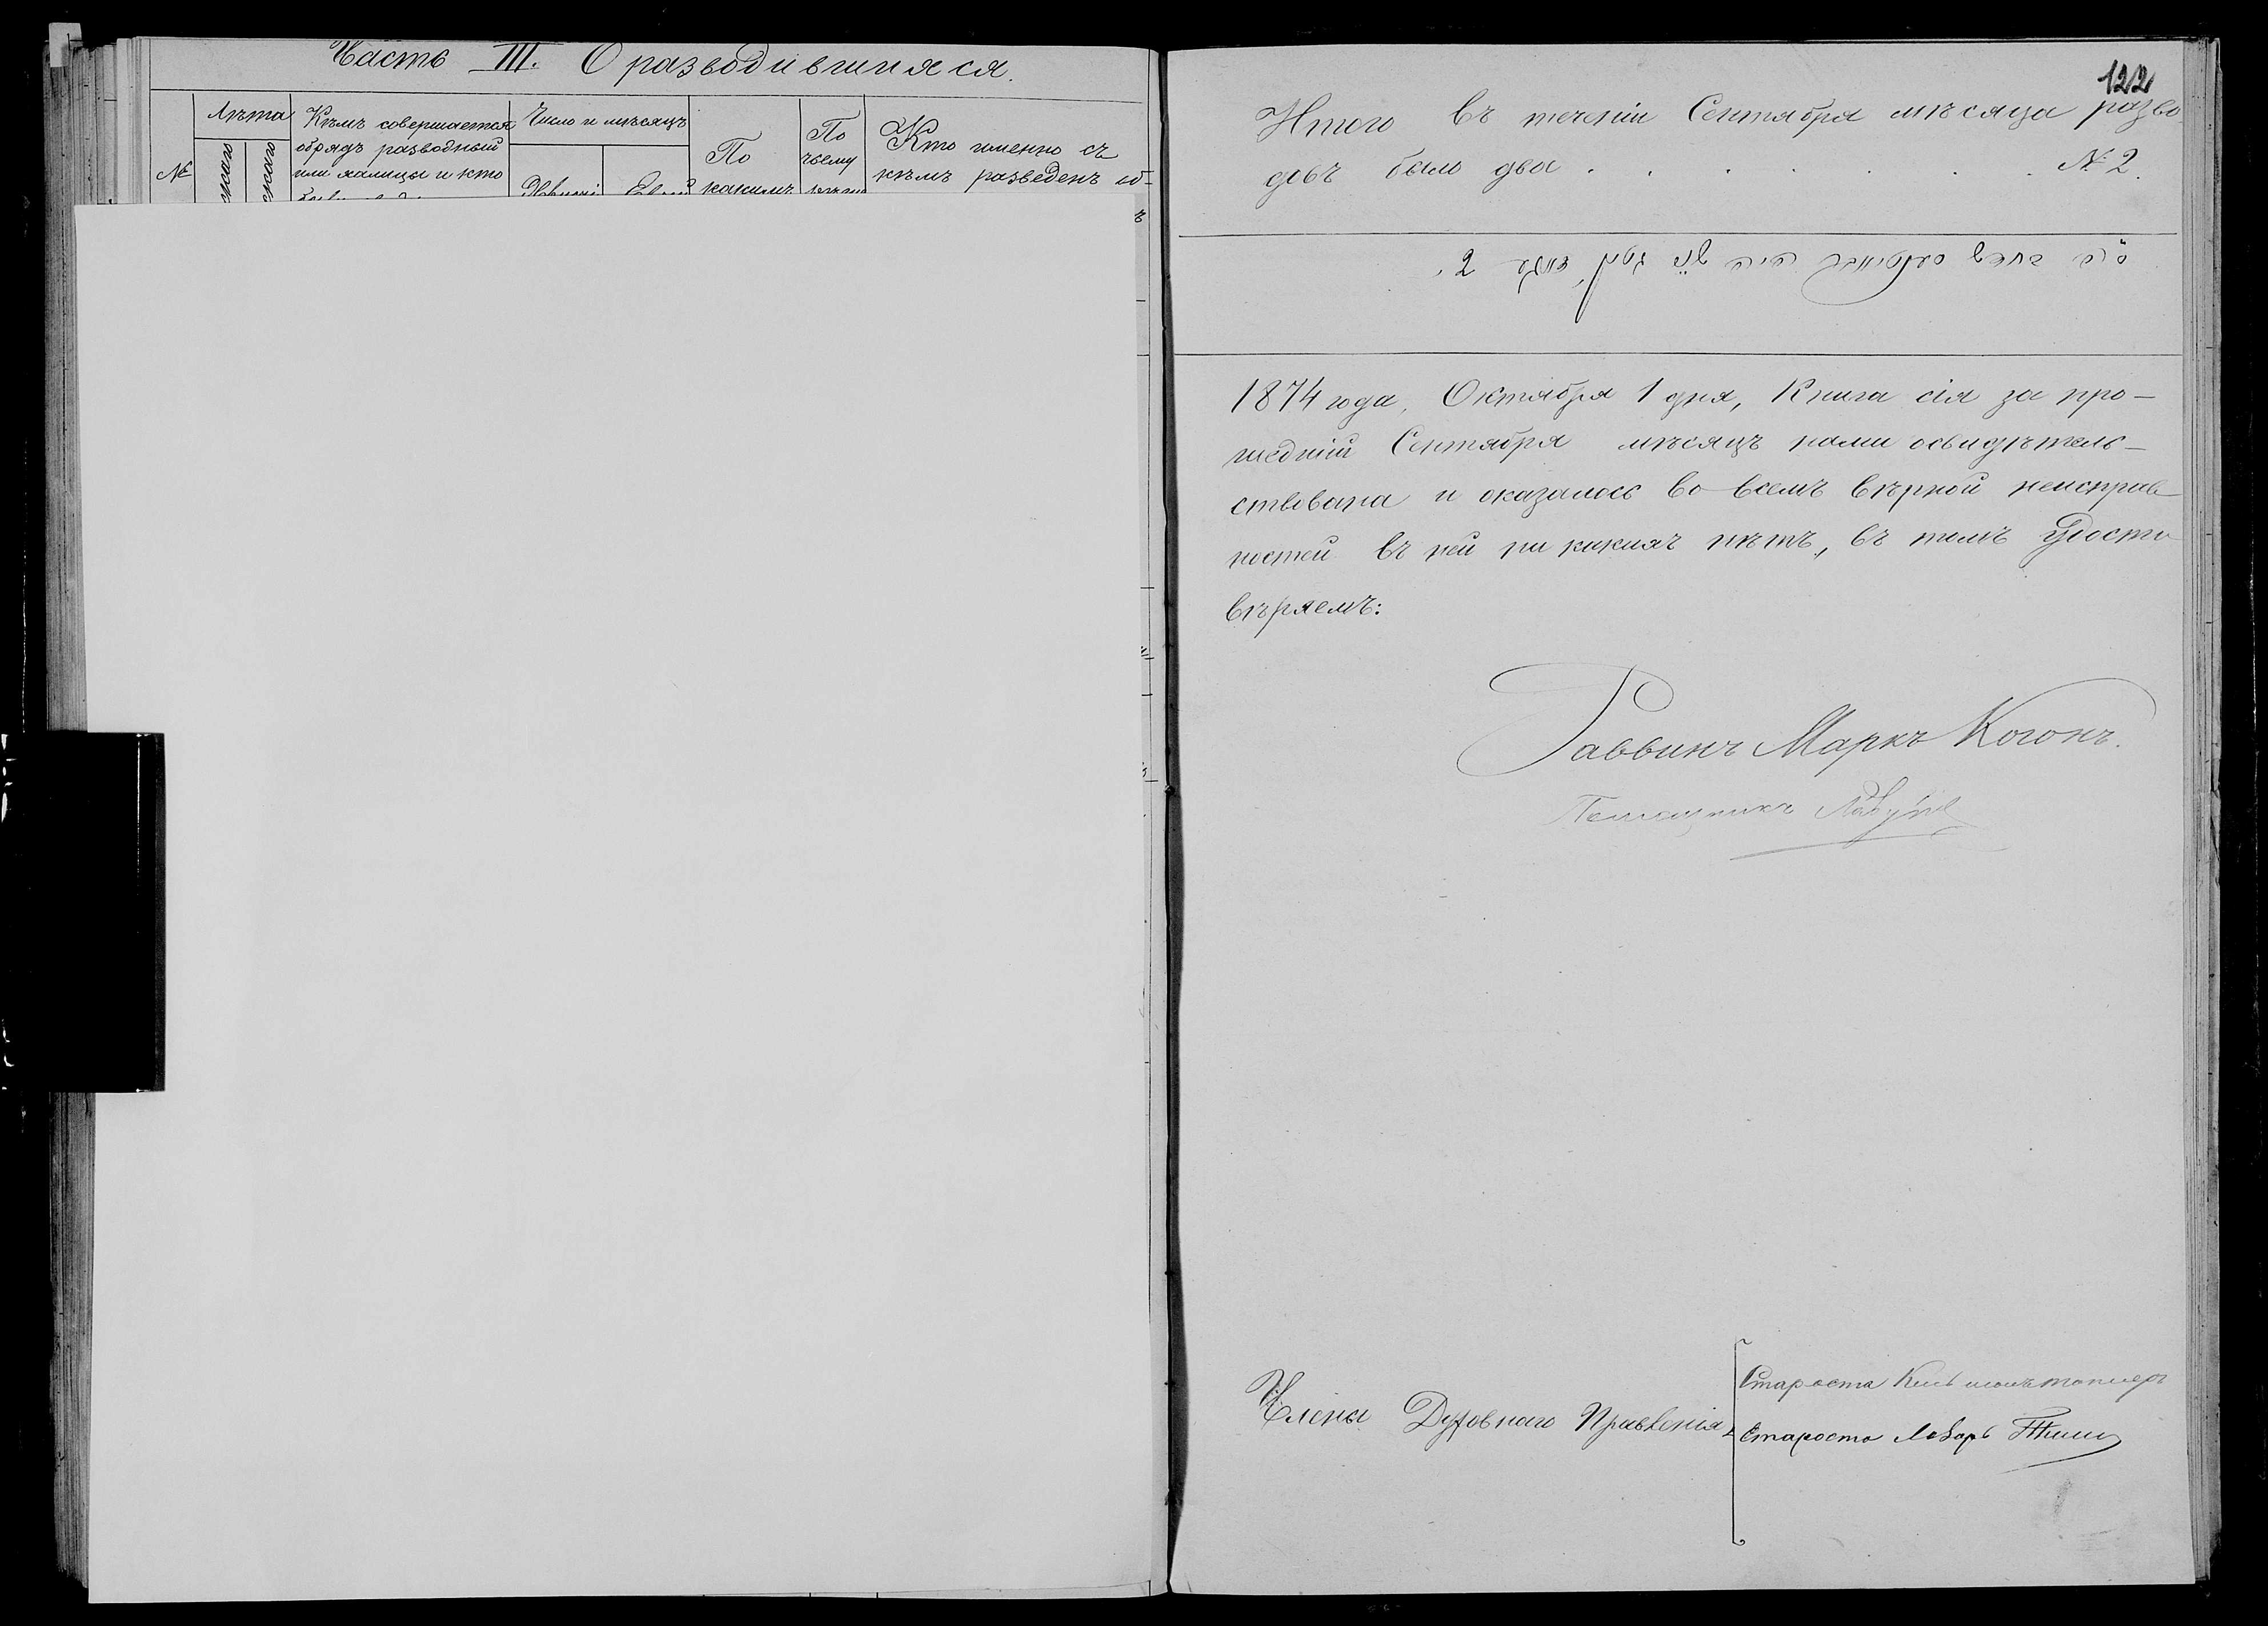 Часть III. О разводившихся.
Лѣта
Кѣмъ совершается
обрядъ разводный
или халицы и кто
Число и мѣсяцъ
По
какимъ
По
чьему
Кто именно съ
кѣмъ разведенъ
№
122
Итого въ теченіи Сентября мѣсяца разво
довъ было два . . . . . . . № 2.
1874 года, Октября 1 дня, Книга сія за про-
шедшій Сентября мѣсяцъ нами освидѣтель-
ствована и оказалось во всемъ вѣрной неисправ-
ностей въ ней ни какихъ нѣтъ, въ томъ удосто
вѣряемъ:
Раввинъ Маркъ Когонъ.
Помощникъ
Члены Духовнаго Правленія
Староста
Староста Лазарь